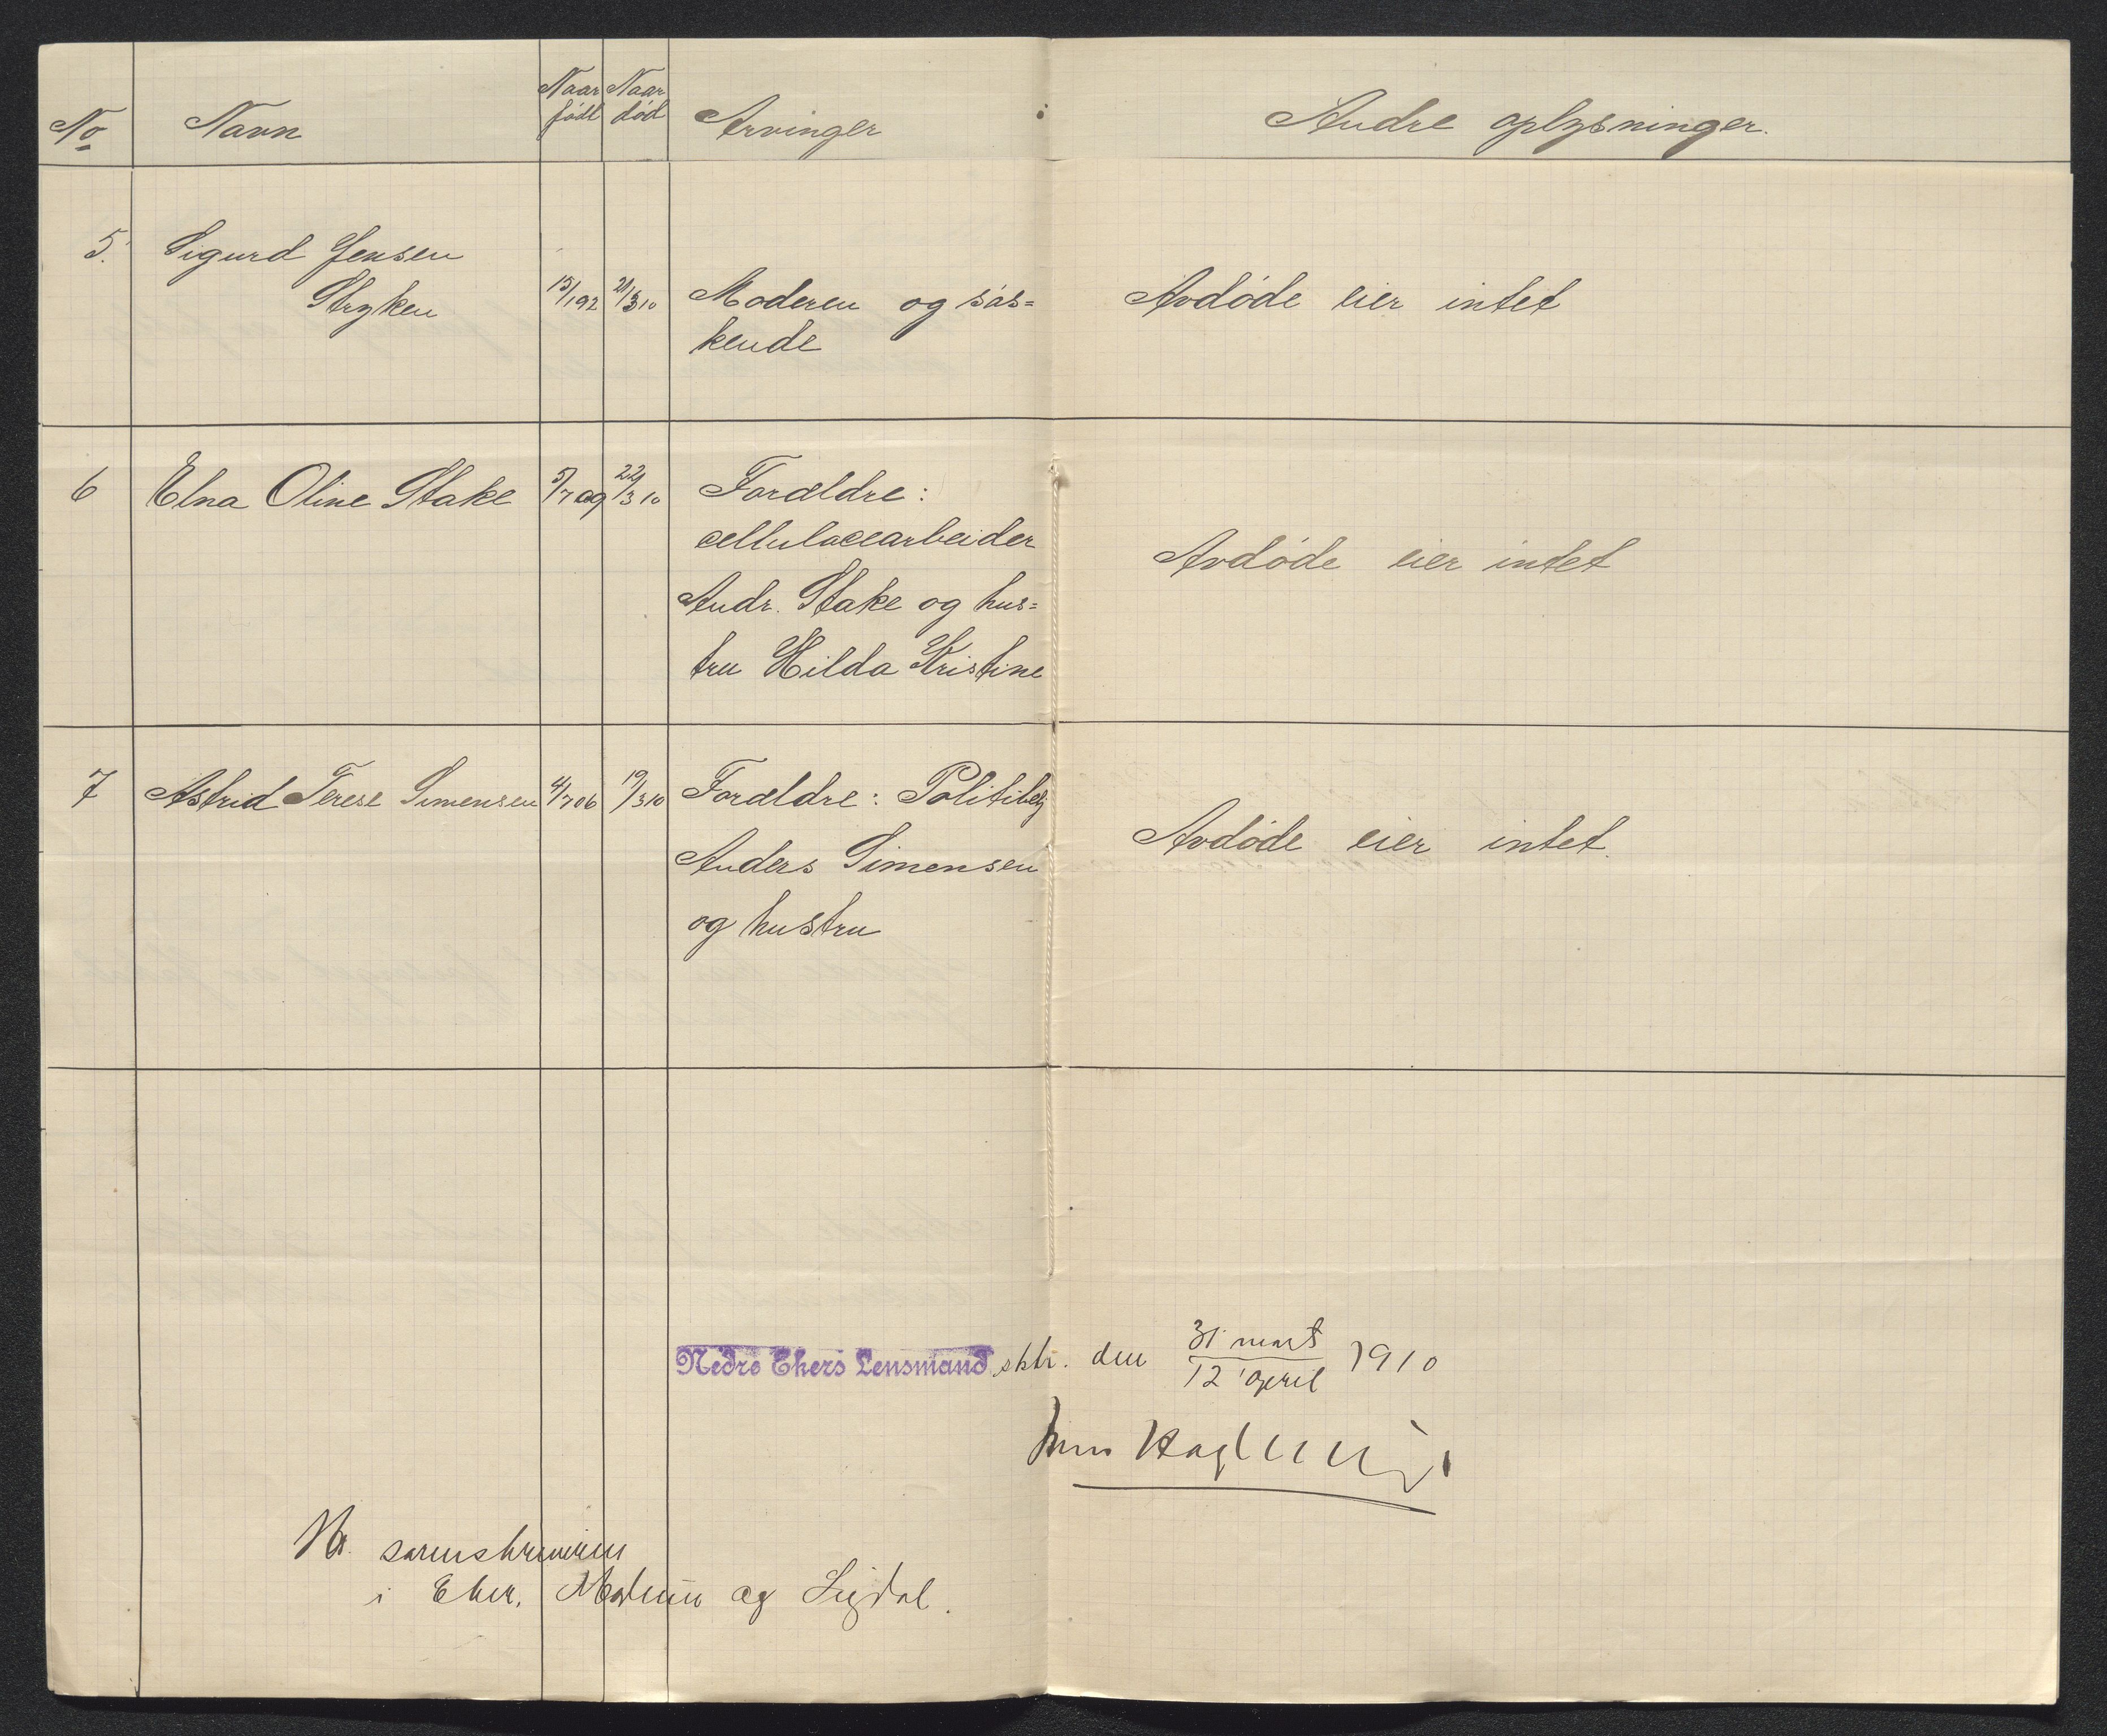 No Navn Naar født Naar død Arvinger Andre oplysninger.
5. Sigurd Jensen
Stryken 15/1 92 21/3 10 Moderen og søs= Avdøde eier intet
kende
6 Elna Oline Stake 5/7 09 22/3 10 Forældre:
cellulocearbeider
Avdøde eier intet
Andr. Stake og hus=
tru Hilda Kristine
7 Astrid Terese Simensen 4/7 06 19/3 10 Forældre: Politibetj
Avdøde eier intet.
Anders Simensen
og hustru
Nedre Ekers Lensmand sktr. den 31 mart 1910
12 april
Hr. sorenskriveren
i Eker, Modum og Sigdal.